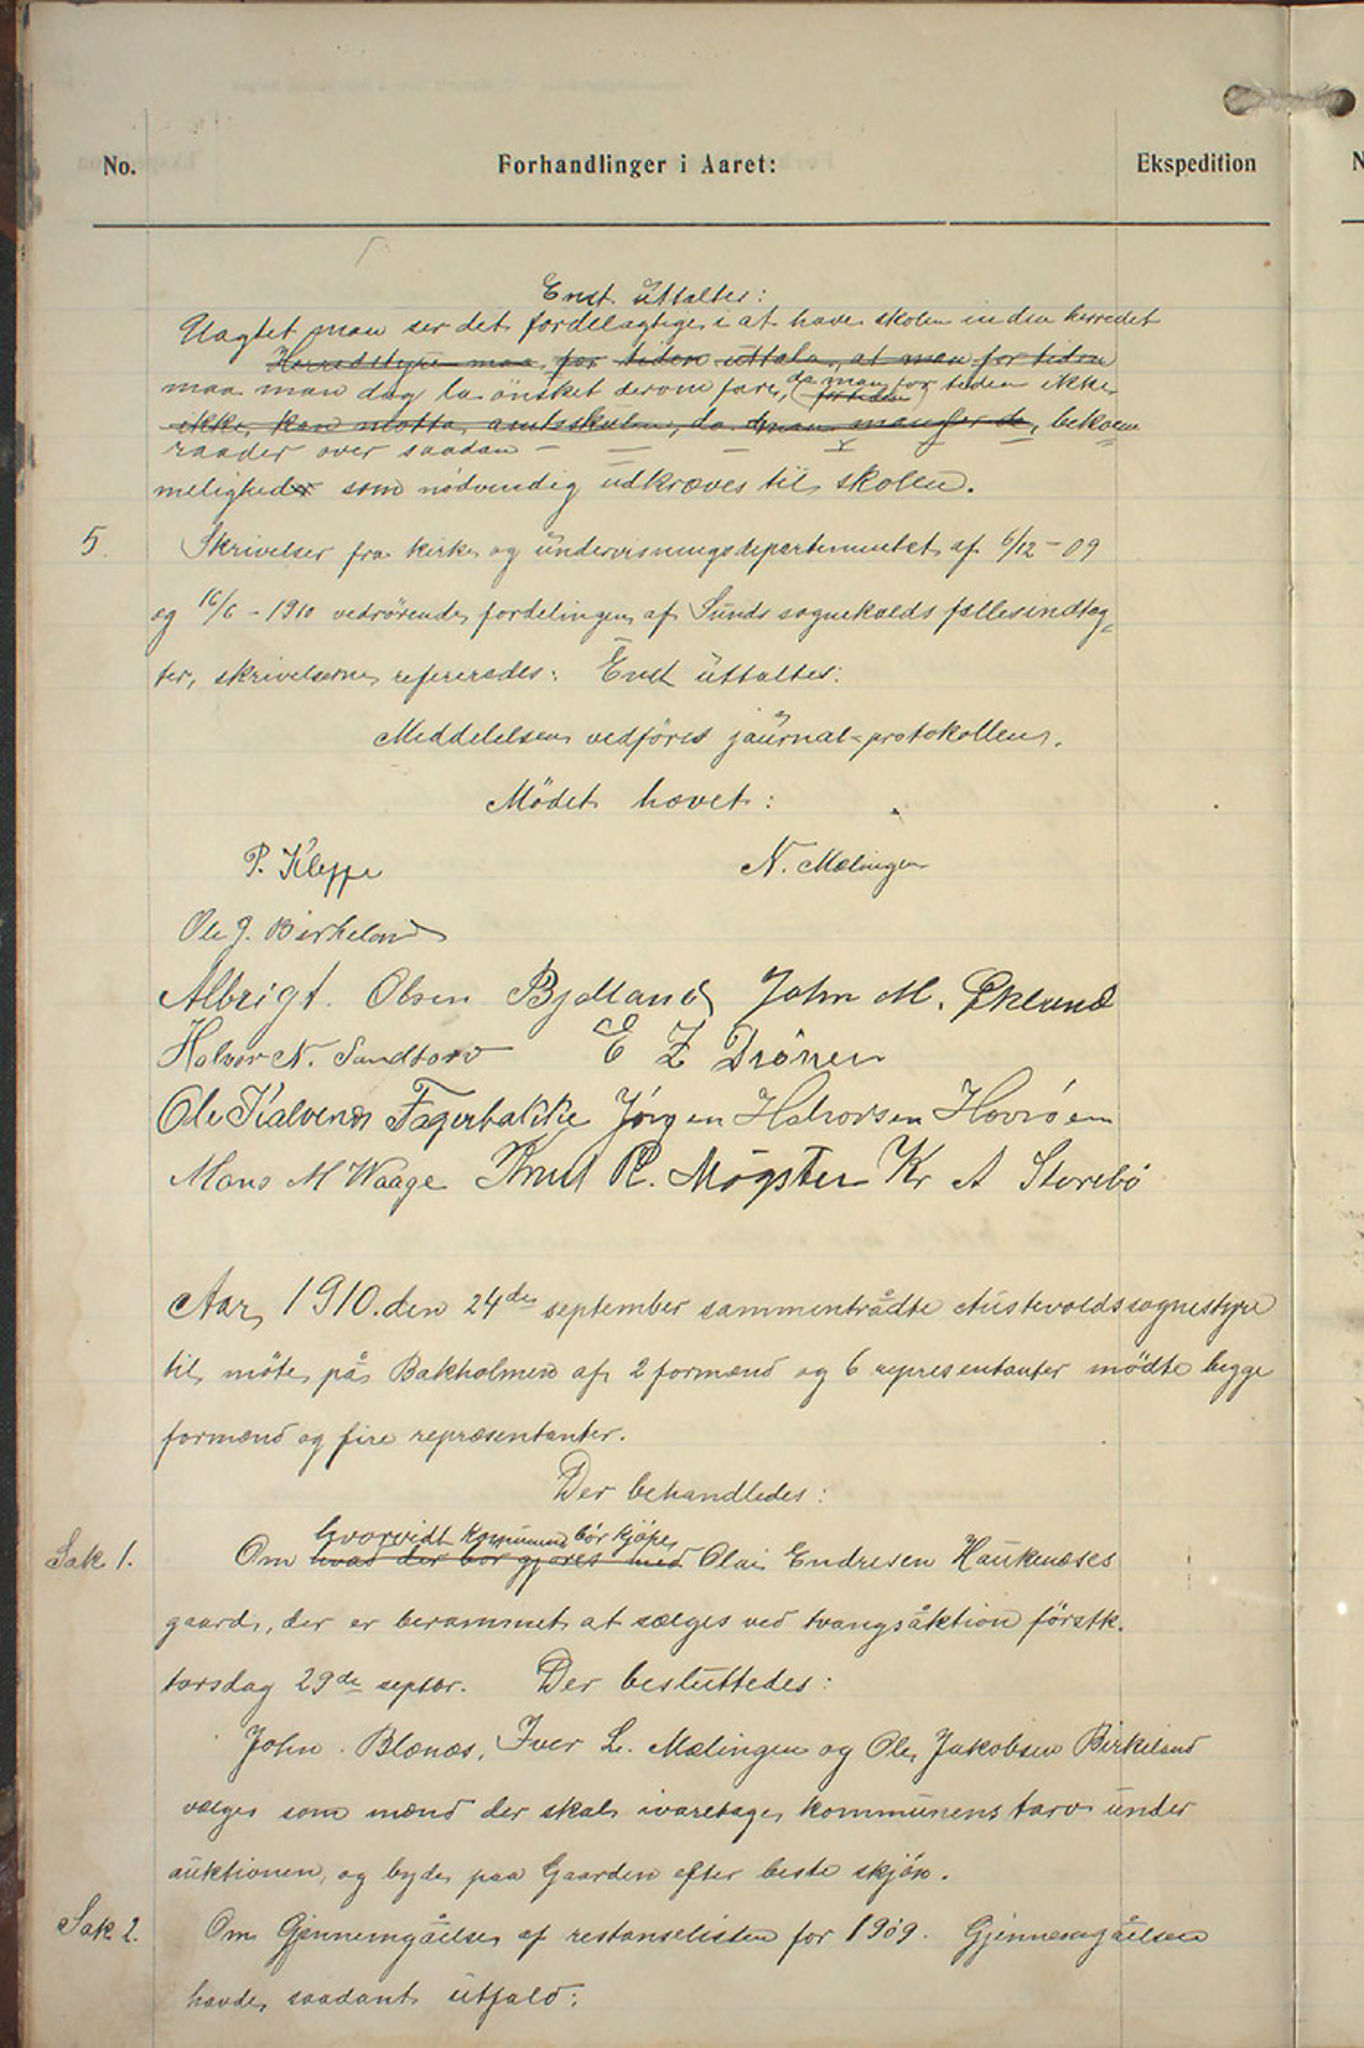 No.
Forhandlinger i Aaret:
Ekspedition
Enst. uttaltes:
Uagtet man ser det fordelagtige i at have skolen inden herredet
Herredstyre maa for tiden uttala, at man for tiden
maa man dog la ønsket derom fare, da man for tiden ikke
for tiden
ikke kan motta amtsskolen, da man man for de, bekvem
raader over saadan
meligheder som nödvendig udkræves til skolen.
5.
Skrivelser fra kirke og undervisningsdepartementet af 6/12 - 09
og 16/6 - 1910 vedrörende fordelingen af Sunds sognekalds fællesindtæg-
ter, skrivelserne refereredes: Enst uttaltes:
Meddelelsen vedföres jaurnal-protokollen.
Mödet hævet:
P. Kleppe
N. Mælingen
Ole J. Birkeland
Albrigt. Olsen Bjelland John M. Øklund
Halvor N. Sandtorv E Z Drönen
Ole Kalvenes Fagerbakke Jörgen Halvorsen Hovröen
Mons M Waage Knut R. Møgster Kr A Storebö
Aar 1910. den 24de september sammentrådte Austevolds sognestyre
til möte på Bakholmen af 2 formænd og 6 representanter mödte begge
formænd og fire repræsentanter.
Der behandledes:
hvorvidt kommunen bör kjöpe
Sak 1.
Om hvad der bör gjöres med Olai Endresen Haukenæses
gaard, der er berammet at sælges ved tvangsåktion förstk.
torsdag 29de septbr. Der besluttedes:
John Blænæs, Iver L. Mælingen og Ole Jakobsen Birkeland
vælges som mænd der skal ivaretage kommunens tarv under
auktionen, og byde paa Gaarden efter beste skjön.
Sak 2.
Om Gjennemgåelse af restanselisten for 1909. Gjennemgåelsen
havde saadant utfald:
N